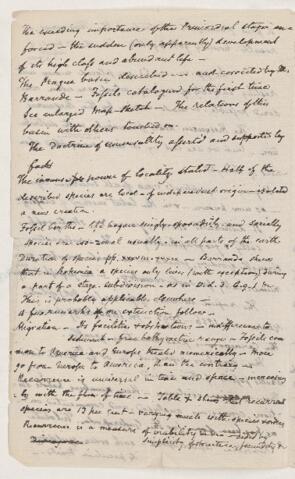 The exceeding importance of the Primordial stage
forced – the sudden (only apparently) development
of its high class and abundant life –
The Prague basin described – and corrected by M.
Barrande – Fossils catalogued for the first time
See enlarged map-sketch – The relations of this
basin with others touched on.
The doctrine of universality asserted and supported by
facts
The power of locality stated – Half of the
described species are local – of independent origin – 
a new creation.
Fossil began singly, sporadically, and socially
species are usually – in all parts of the earth
Direction of species – Barrande
that in Bohemia a species only lives (with exceptions) during
a part of a stage, subdivision – as in
This is probably applicable elsewhere –
A few remarks on extinction follow –
Migration – Its facilities & obstructions – indifference to
– free bathymetric range – Fossils com
mon to America and Europe treated numerically – more
go from Europe to America, than the contrary –
Recurrence is universal in time and space – increasing
by with the flow of time – Table & recurrent
species are 13 per cent – varying much with species & orders
Recurrence is a measure of viability – aided by
simplicity of structure, fecundity &